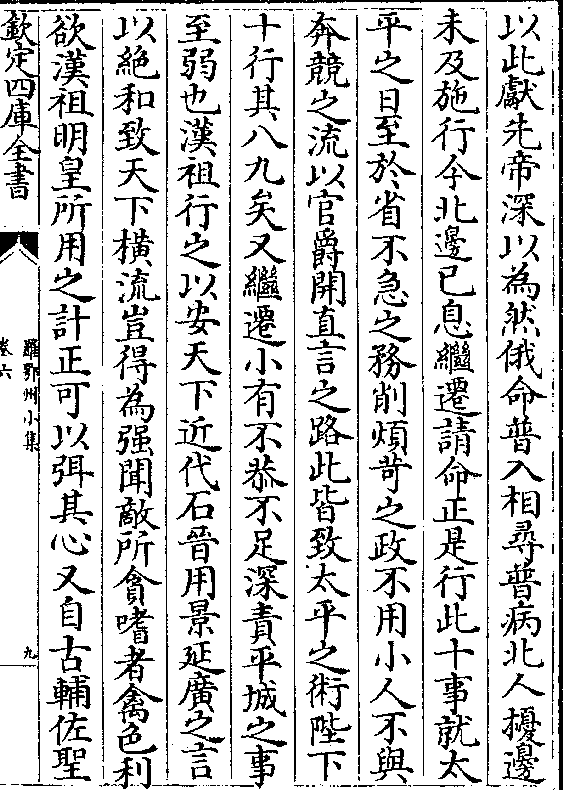 以此獻先帝深以為然俄命普入相尋普病北人擾邊
未及施行今北邊已息繼遷請命正是行此十事就太
平之日至於省不急之務削煩苛之政不用小人不與
奔競之流以官爵開直言之路此皆致太平之術陛下
十行其八九矣又繼遷小有不恭不足深責平城之事
至弱也漢祖行之以安天下近代石晉用景延廣之言
以絶和致天下横流豈得為强聞敵所貪嗜者禽色利
欲漢祖明皇所用之計正可以弭其心又自古輔佐聖
欽定四庫全書
羅鄂州小集
卷六
九